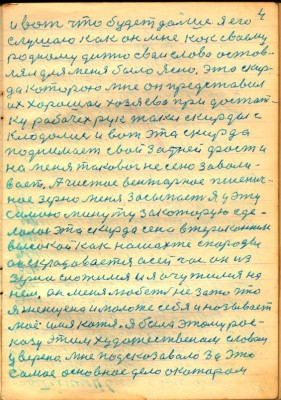 4
и вот что будет дальше я его
слушаю как он мне как своему
родному дитю сваи слово остов-
лял для меня было ясно, это скир-
да которою мне он представил
их хорошаи хозяева при достат-
ку рабочех рук такаи скирды с
и вот эта скирда
поднимает свой задней фрост и
на меня таковое не сено завали-
вает, А чистое пшенич-
ное зерно меня засыпает я у эту
самаю минуту закоторую сде-
лолас эта скирда сено втериконник
высокой как на шахте породы
складывается а сей час он из
зерна сложился и я очутился на
нем, он меня любет не за то что
я женщена и моложе себя и называет
маё имя катя. я была этому рос-
казу этим художественам словам
уверена мне подсказавало За это
самое основное дело о катором